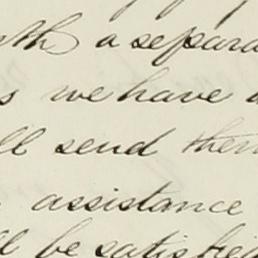 a separa
we have
ll send them
assistance
ll be satisfied